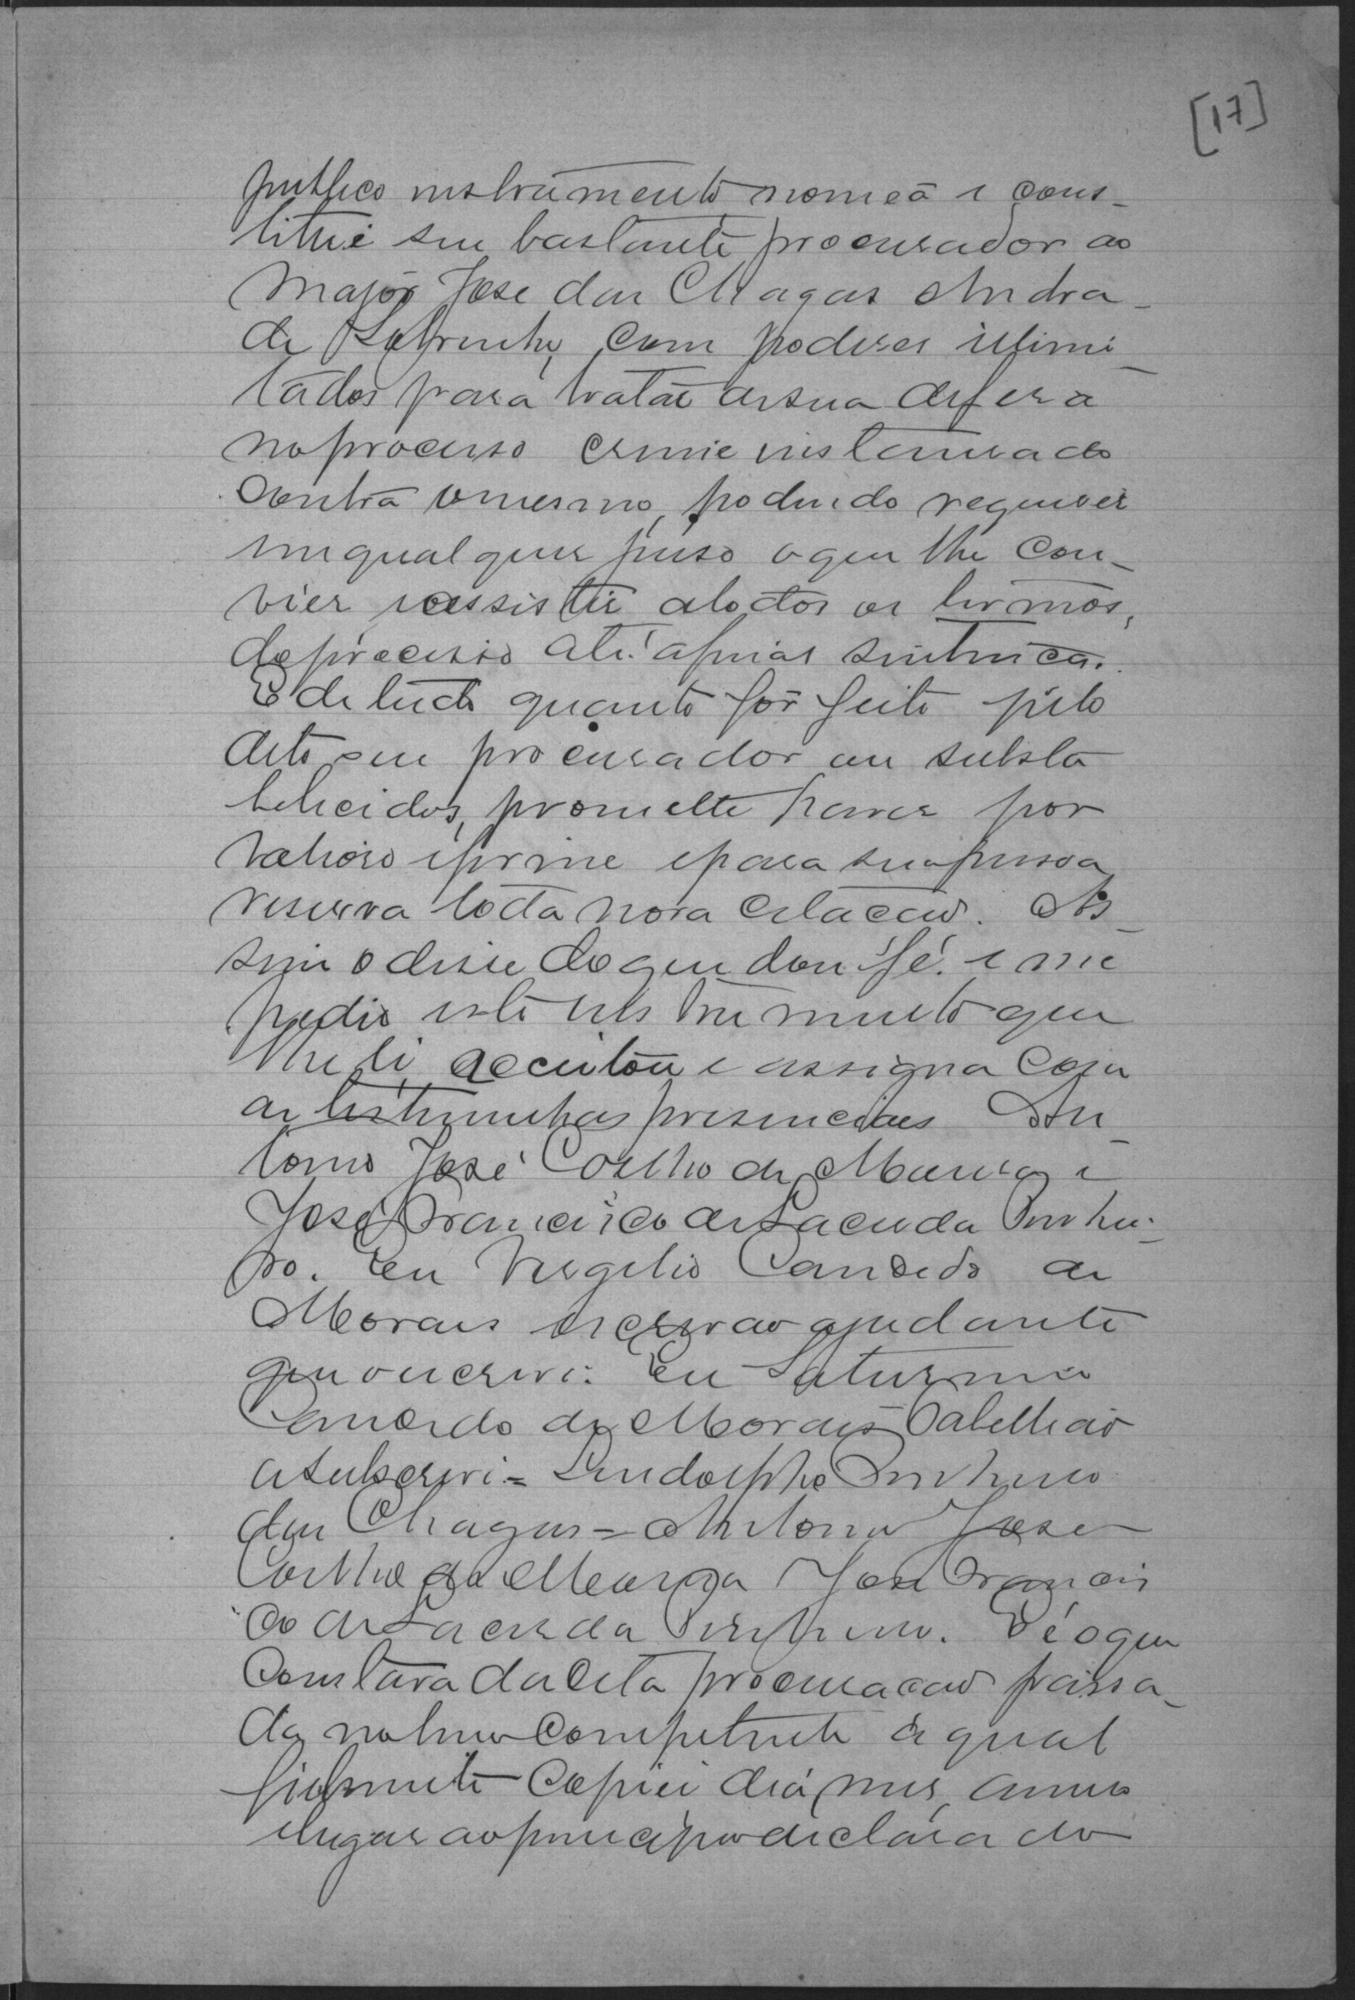 [17]
publico instrumento nomeã e cons-
titue seu bastante procurador ao
Major Jose das Chagas Andra-
de Sobrinho, com poderes illimi-
tados para tratar desua defesa
noprocesso crime instaurado
contra omesmo, podendo requerer
emqualquer juiso oque lhe con-
vier, eassistir atodos os termos,
doprocesso até afinal sentença.
E de tudo quanto fôr feito pelo
dito seu procurador ou substa
belecidos, promette haver por
valioso efirme epara suapessoa
reserva toda nova citacão. As-
sim o disse doque dou fé. e me
pedio este instrumento que
lhe li, acceitou e assigna com
as testemunhas presenciaes An-
tonio José Coelho de Moura e
José Francisco de Lacerda Pinhei-
ro. Eu Virgilio Candido de
Moraes escrivão ajudante
que o escrevi. Eu Saturnino
Candido de Moraes Tabellião
osubscrevi = Lindolpho Pinheiro
das Chagas = Antonio Jose
Coelho de Moura Jose Francis
co de Lacerda Pinheiro. É oque
constava da dita procuracão passa-
da no livro competente a qual
fielmente copiei dia, mes, anno
elugar aoprincipio declarado